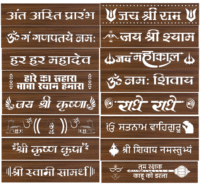 अंत अस्ति प्रारंभ
जय श्री राम
ॐ गं गणपतये नमः
जय श्री श्याम
हर हर महादेव
जय महाँकाल
हारे का सहारा
बाबा श्याम हमारा
ॐ नमः शिवाय
जय श्री कृष्णा
राधे राधे
ਸਤਨਾਮ ਵਾਹਿਗੁਰੂ
श्री कृष्ण कृपा
श्री शिवाय नमस्तुभ्यं
श्री स्वामी समर्थ
तुम रक्षक
काहू को डरना